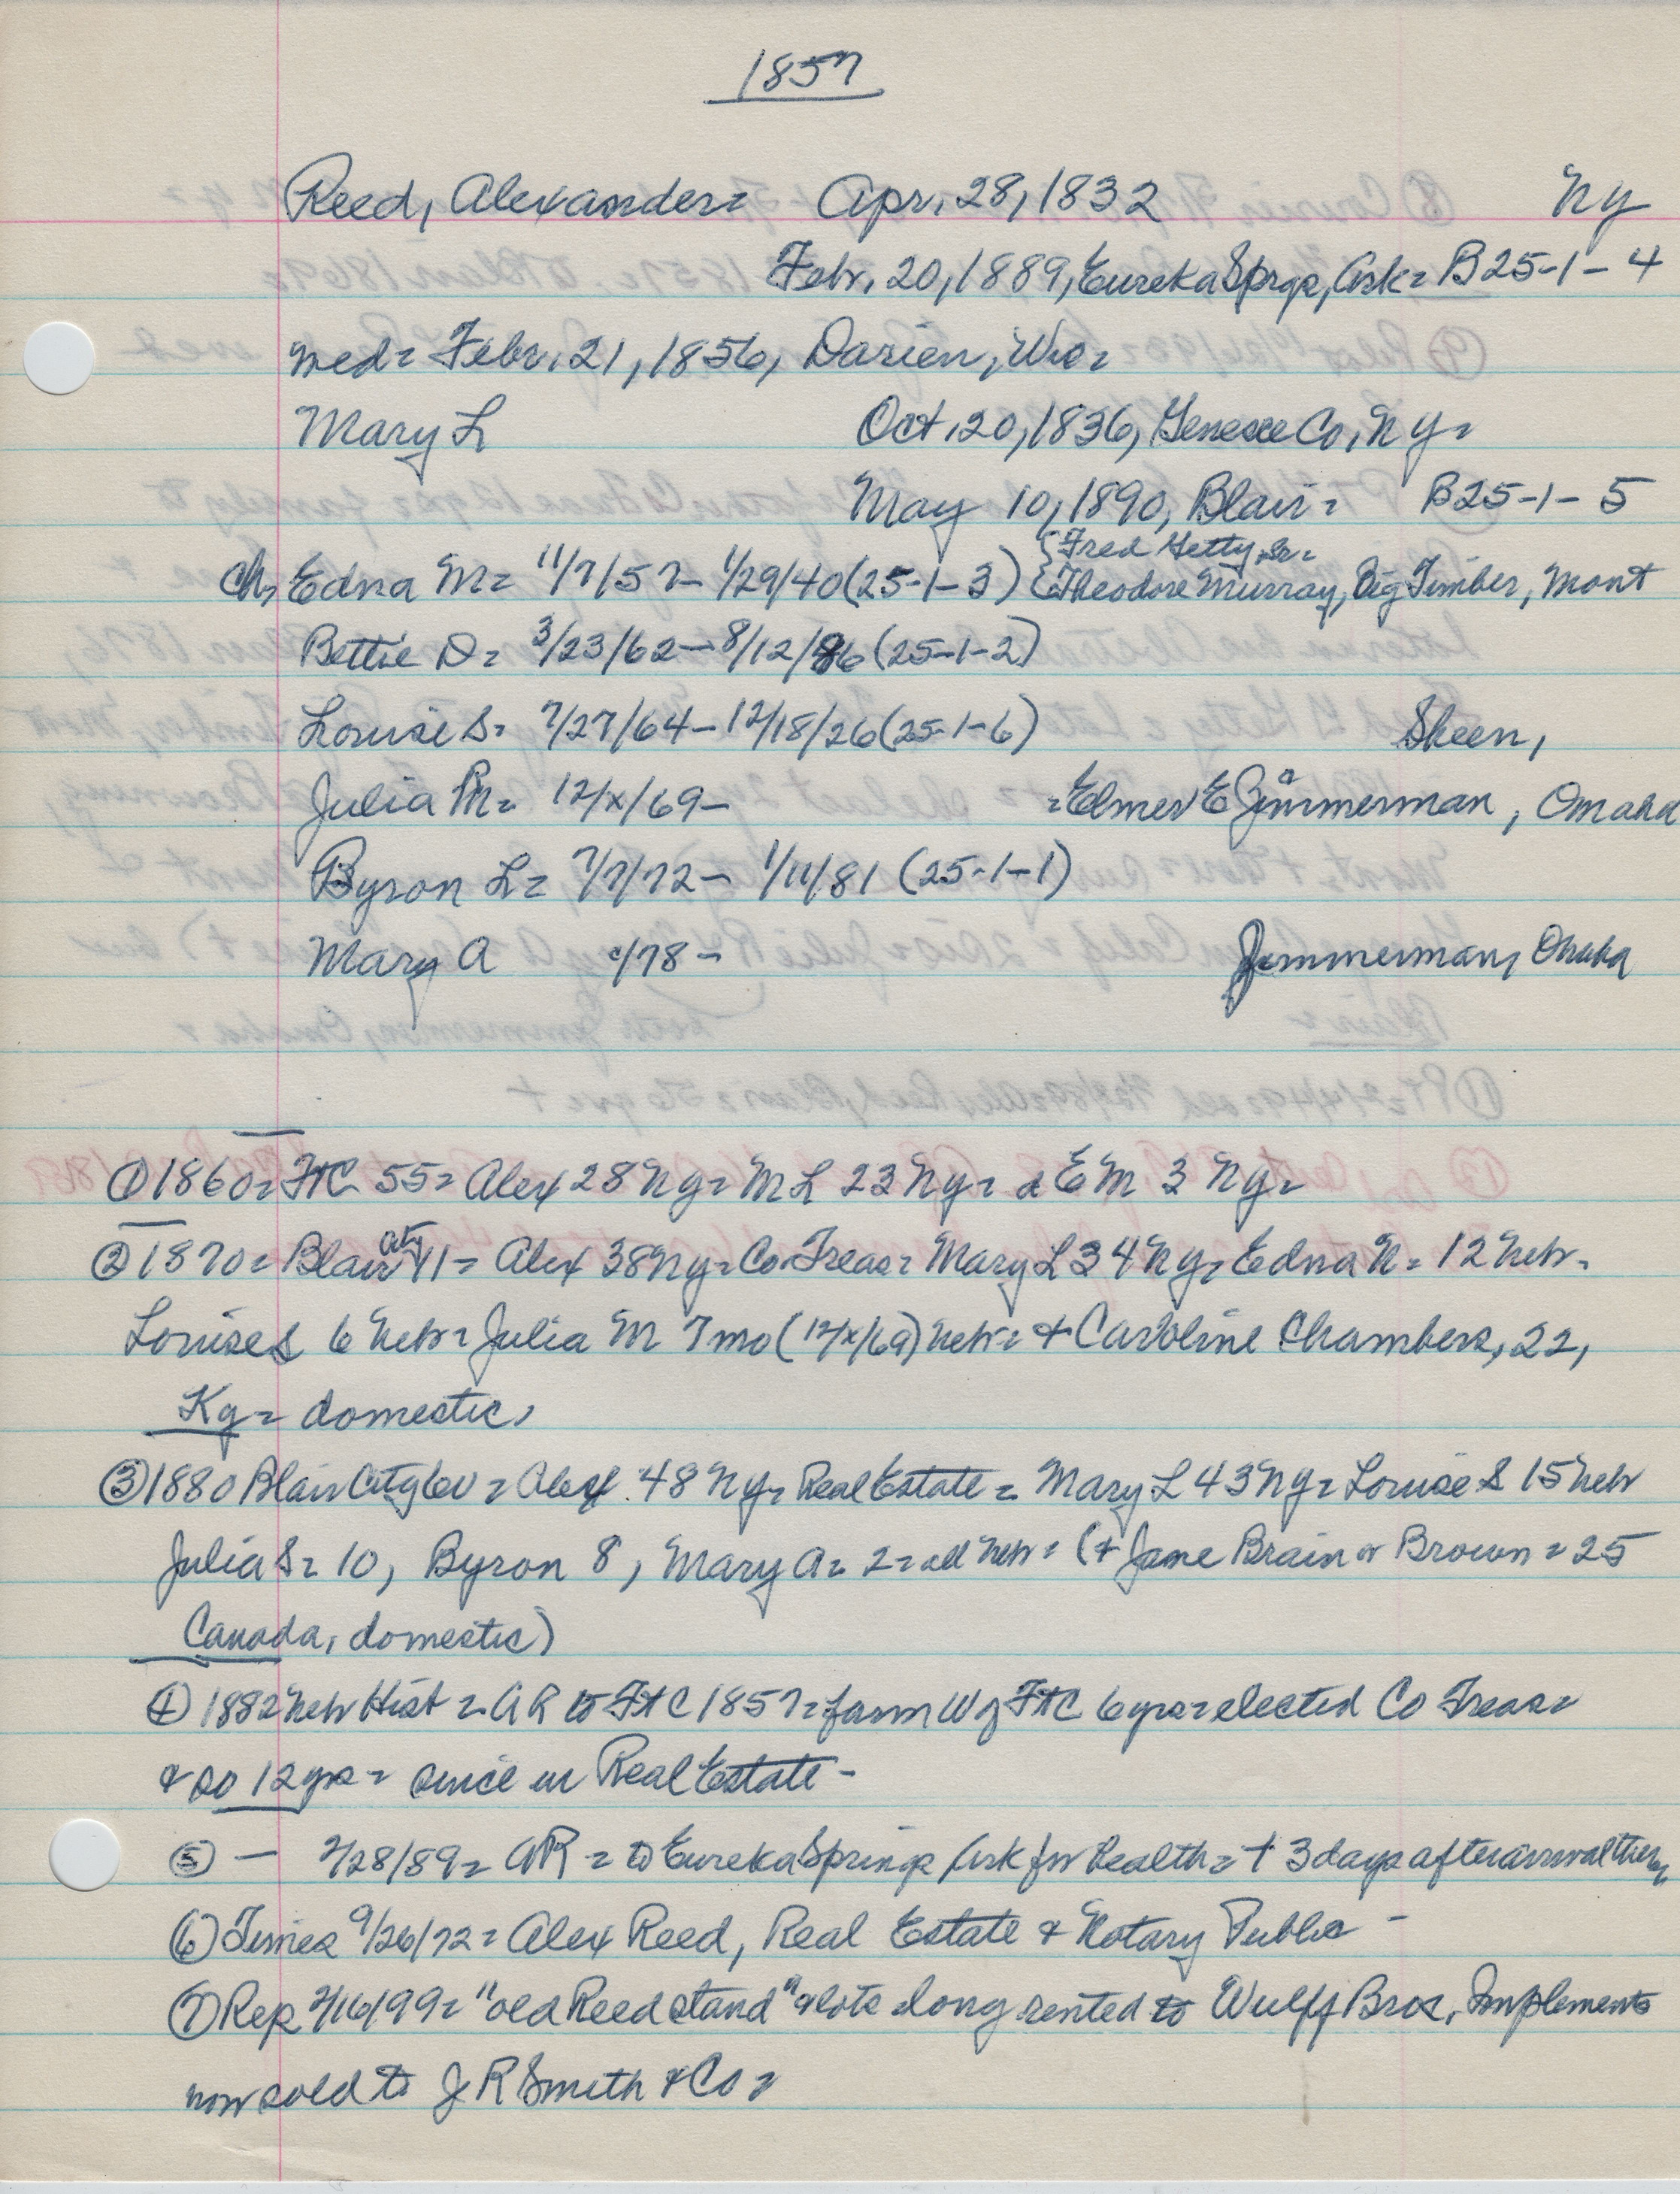 1857
Reed, Alexander= Apr. 28, 1832 NY
Febr. 20, 1889, Eureka Sprgs, Ark= B25-1-4
med= Febr. 21, 1856, Darien, Wis=
Mary L Oct. 20, 1836, Genesee Co, NY=
May 10, 1890, Blair= B25-1-5
{Fred Hetty, Sr=
Ch, Edna M= 11/7/57- 1/29/40 (25-1-3) {Theodore Murray, Big Timber, Mont
Bettie D= 3/23/62-8/12/86 (25-1-2)
Louise S= 7/27/64-12/18/26 (25-1-6) Skeen,
Julia M= 12/x/69- =Elmer E Zimmerman, Omaha
Byron L= 7/7/72- 1/11/81 (25-1-1)
Mary A c/78- Zimmerman, Omaha
① 1860= FtC 55= Alex 28 NY= M L 23 NY= d E M 3 NY=
② 1870= Blair city 41= Alex 38 NY= Co Treas= Mary L 34 NY= Edna N= 12 Nebr=
Louise S 6 Nebr= Julia M 7 mo (12/x/69) Nebr= + Caroline Chambers, 22,
Ky= domestic,
③ 1880 Blair City 60= Alex 48 NY= Real Estate= Mary L 43 NY= Louise S 15 Nebr
Julia S= 10, Byron 8, Mary A= 2= all Nebr= (+ Jane Brain or Brown= 25
Canada, domestic)
④ 1882 Nebr Hist= AR to FtC 1857= farm W of FtC 6 yrs= elected Co Treas=
& so 12 yrs= since in Real Estate-
⑤ - 2/28/89= AR= to Eureka Springs Ark for health= + 3 days after arrival there,
⑥ Times 9/26/72= Alex Reed, Real Estate & Notary Public -
⑦ Rep 2/16/99= "old Reed stand" & lots long rented to Wulff Bros, Implements
now sold to J R Smith & Co=